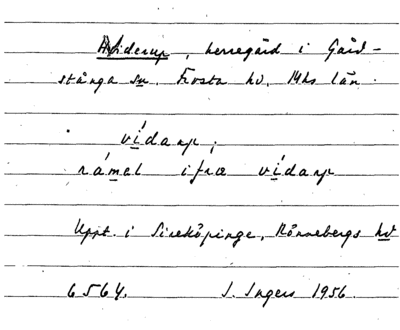 Hviderup, herregård i Gård-
stånga sn. Frosta hd. Mhs län.
vídarup,
rámel ifræ vídarup
Uppt. i Sireköpinge, Rönnebergs hd
6564. I. Ingers 1956.